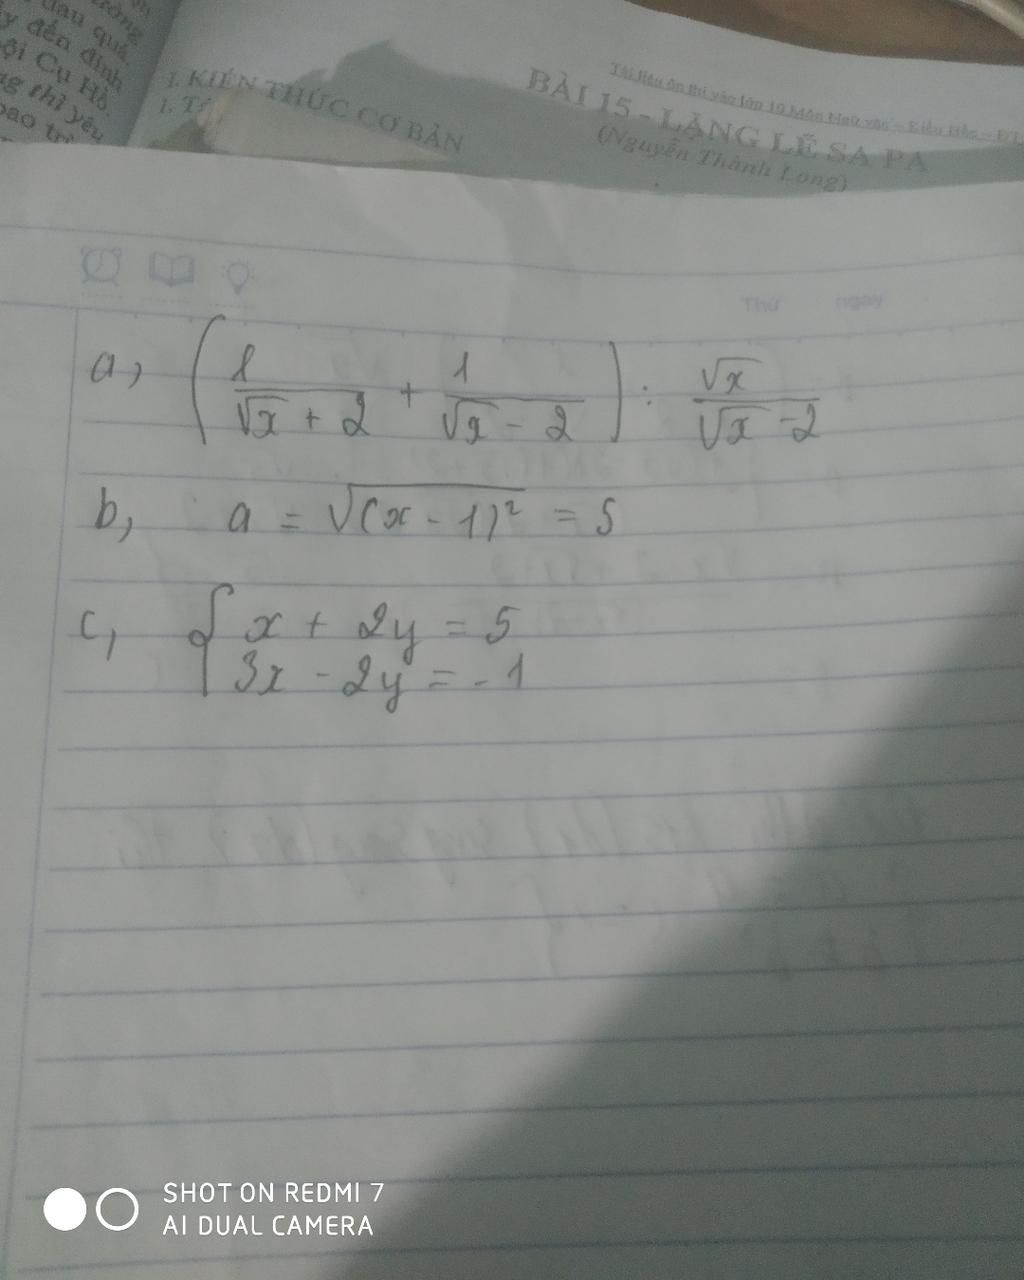 dau quá
y đến đỉnh
ội Cụ Hồ.
ng thì yêu
I. KIẾN THỨC CƠ BẢN
Tài liệu ôn thi vào lớp 10 Môn Ngữ văn
BÀI 15 - LẶNG LẼ SA PA
(Nguyễn Thành Long)
Thứ ngày
a, (1/(√x + 2) + 1/(√x - 2)) : √x/(√x - 2)
b, a = √(x - 1)² = 5
c, { x + 2y = 5
3x - 2y = -1
SHOT ON REDMI 7
AI DUAL CAMERA